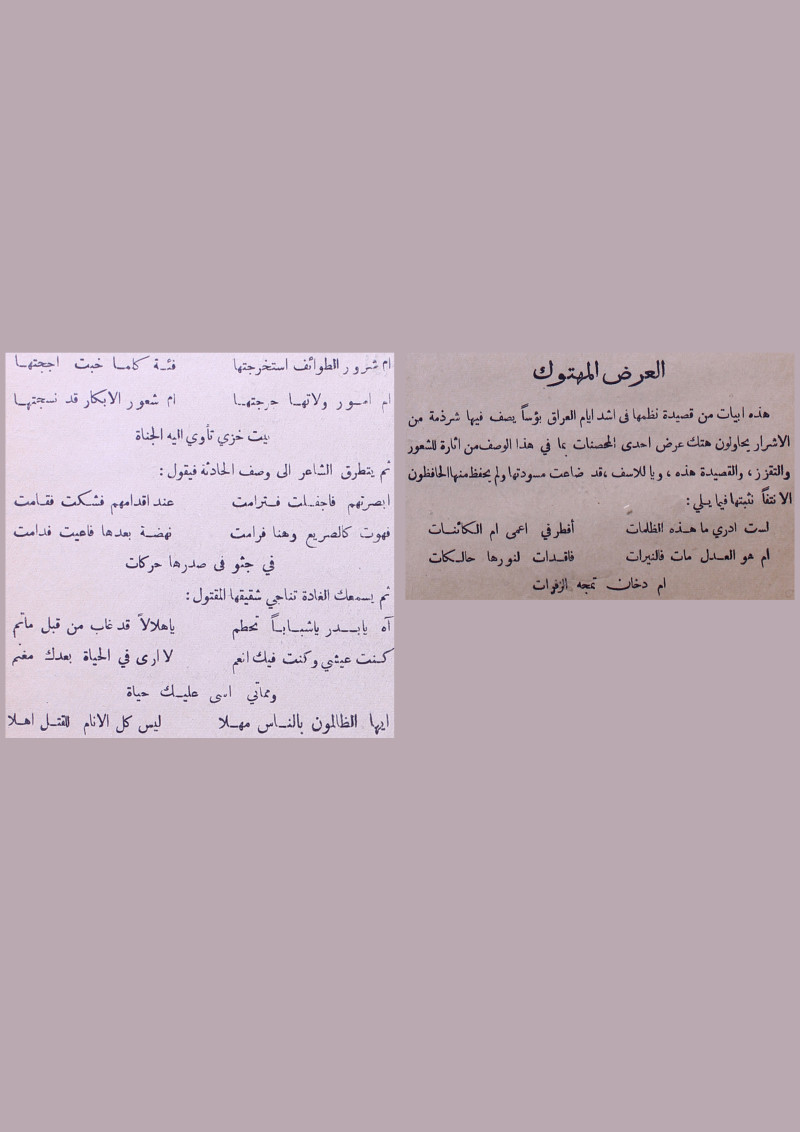 العرض المهتوك
هذه ابيات من قصيدة نظمها فى اشد ايام العراق بؤساً يصف فيها شرذمة من
الاشرار يحاولون هتك عرض احدى المحصنات بما في هذا الوصف من اثارة للشعور
والتقزز ، والقصيدة هذه ، ويا للاسف ،قد ضاعت مسودتها ولم يحفظ منها الحافظون
الا نتفاً نثبتها فيما يلي :
لست ادري ما هذه الظلمات أفطرفي اعمى ام الكائنات
ام هو العدل مات فالنيرات فاقدات لنورها حالكات
ام دخان تمجه الزفرات
ام شرور الطوائف استخرجتها فئة كلما خبت اججتها
ام امور ولاتها حرجتها ام شعور الابكار قد نسجتها
بيت خزي تأوي اليه الجناة
ثم يتطرق الشاعر الى وصف الحادثة فيقول :
ابصرتهم فاجفلت فترامت عند اقدامهم فشكت فقامت
فهوت كالصريع وهنا فرامت نهضة بعدها فاعيت فدامت
في جثو فى صدرها حركات
ثم يسمعك الغادة تناجي شقيقها المقتول :
آه يابدر ياشباباً تحطم ياهلالاً قد غاب من قبل ماتم
كنت عيشي وكنت فيك انعم لا ارى في الحياة بعدك مغنم
ومماتي اسى عليك حياة
ايها الظالمون بالناس مهلا ليس كل الانام للقتل اهلا